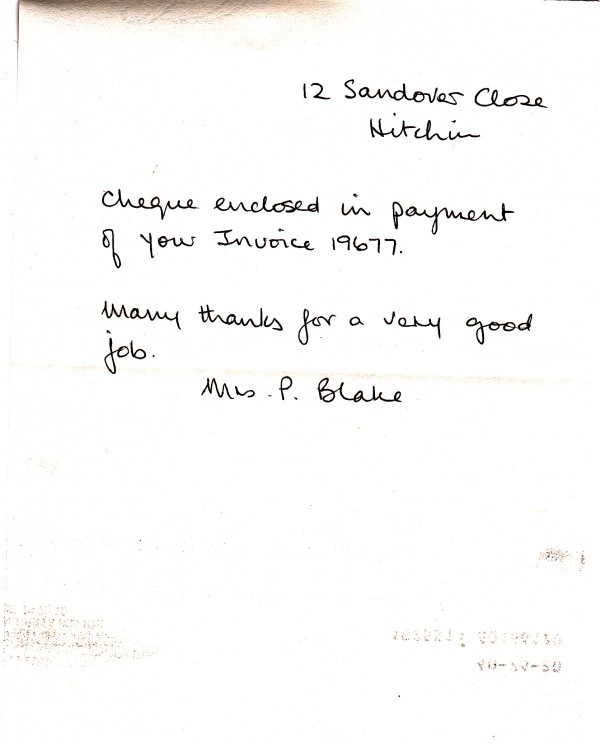 12 Sandover Close
Hitchin
Cheque enclosed in payment
of your Invoice 19677.
Many thanks for a very good
job.
Mrs. P. Blake